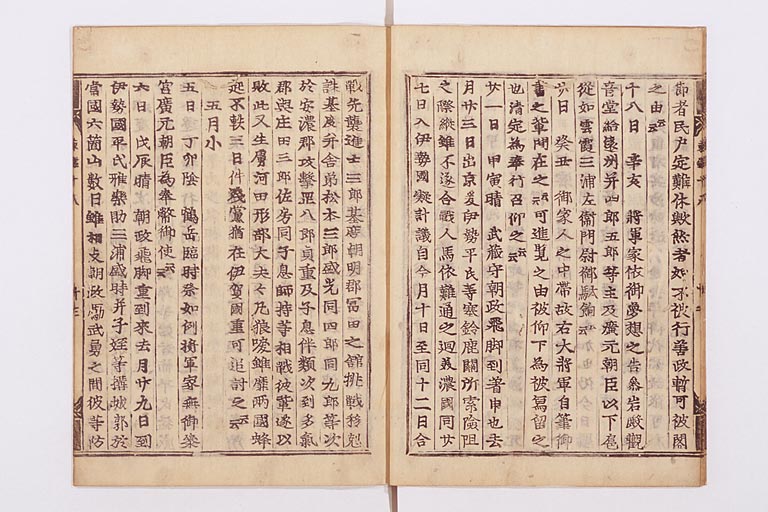 節者民戸定難休歟然者如不被行善政暫可被閣
之由云云
十八日 辛亥 將軍家依御夢想之告參岩殿觀
音堂給遠州并四郎五郎等主及廣元朝臣以下扈
從如雲霞三浦左衛門尉御駄餉云云
廿日 癸丑 御家人之中帶故右大將軍自筆御
書之輩間在之云云可進覽之由被仰下為被寫留之
也清定為奉行召仰之云云
廿一日 甲寅晴 武藏守朝政飛脚到著申也去
月廿三日出京爰伊勢平氏等塞鈴鹿關所索險阻
之際縱雖不遂合戰人馬依難通之廻美濃國同廿
七日入伊勢國凝計議自今月十日至同十二日合
戰先襲進士三郎基度朝明郡冨田之舘挑戰移剋
誅基度并舎弟松本三郎盛光同四郎同九郎等次
於安濃郡攻撃罡八郎貞重及子息伴類次到多氣
郡與庄田三郎佐房同子息師持等相戰彼輩遂以
敗北又生虜河田刑部大夫云云凡狼唳雖靡兩國蜂
起不軼三日件殘黨猶在伊賀國重可追討之云云
五月小
五日 丁卯陰 鶴岳臨時祭如例將軍家無御參
宮廣元朝臣為奉幣御使云云
六日 戊辰晴 朝政飛脚重到來去月廿九日到
伊勢國平氏雅樂助三浦盛時并子姪等搆城郭於
當國六箇山數日雖相支朝政勵武勇之間彼等防